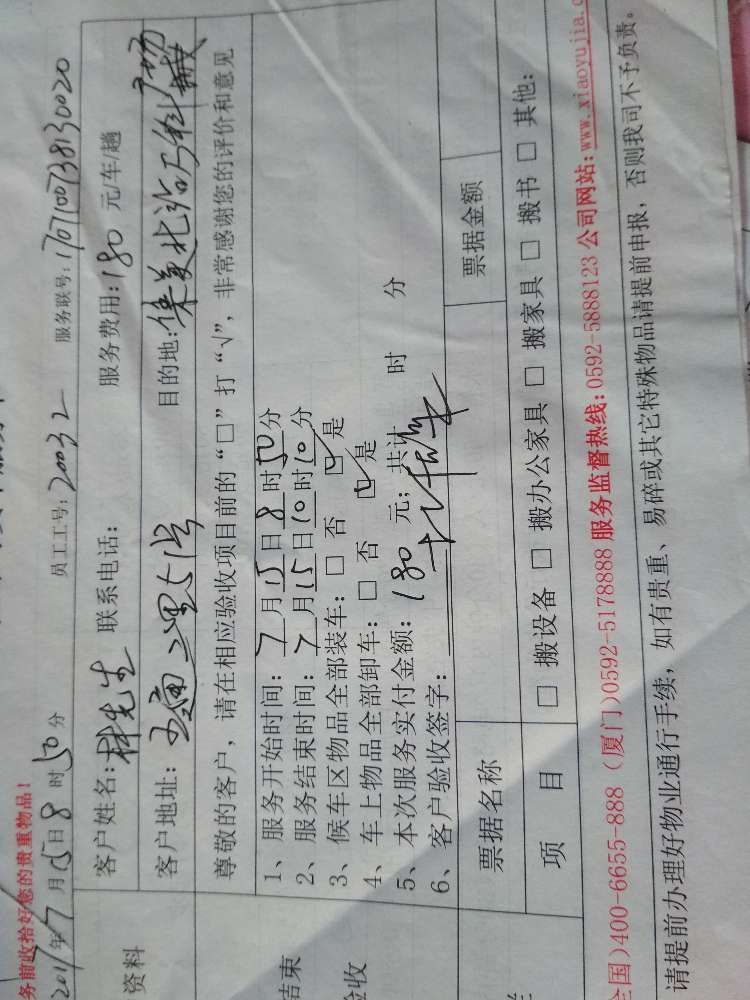 务前收拾好您的贵重物品!
2017年7月15日8时50分 员工工号:20032 服务联号:1707100738130020
资料
客户姓名:林先生 联系电话: 服务费用:180 元/车/趟
客户地址: 二里51号 目的地:集美北站
尊敬的客户,请在相应验收项目前的“□”打“√”,非常感谢您的评价和意见
结束
验收
1、服务开始时间:7月15日8时50分
2、服务结束时间:7月15日10时10分
3、候车区物品全部装车:□ 否 ☑ 是
4、车上物品全部卸车:□ 否 ☑ 是
5、本次服务实付金额:180 元;共计 时 分
6、客户验收签字:
票据名称 票据金额
项 目 □ 搬设备 □ 搬办公家具 □ 搬家具 □ 搬书 □ 其他:
全国)400-6655-888 (厦门)0592-5178888 服务监督热线:0592-5888123 公司网站:www.xiaoyujia.c
请提前办理好物业通行手续,如有贵重、易碎或其它特殊物品请提前申报,否则我司不予负责。